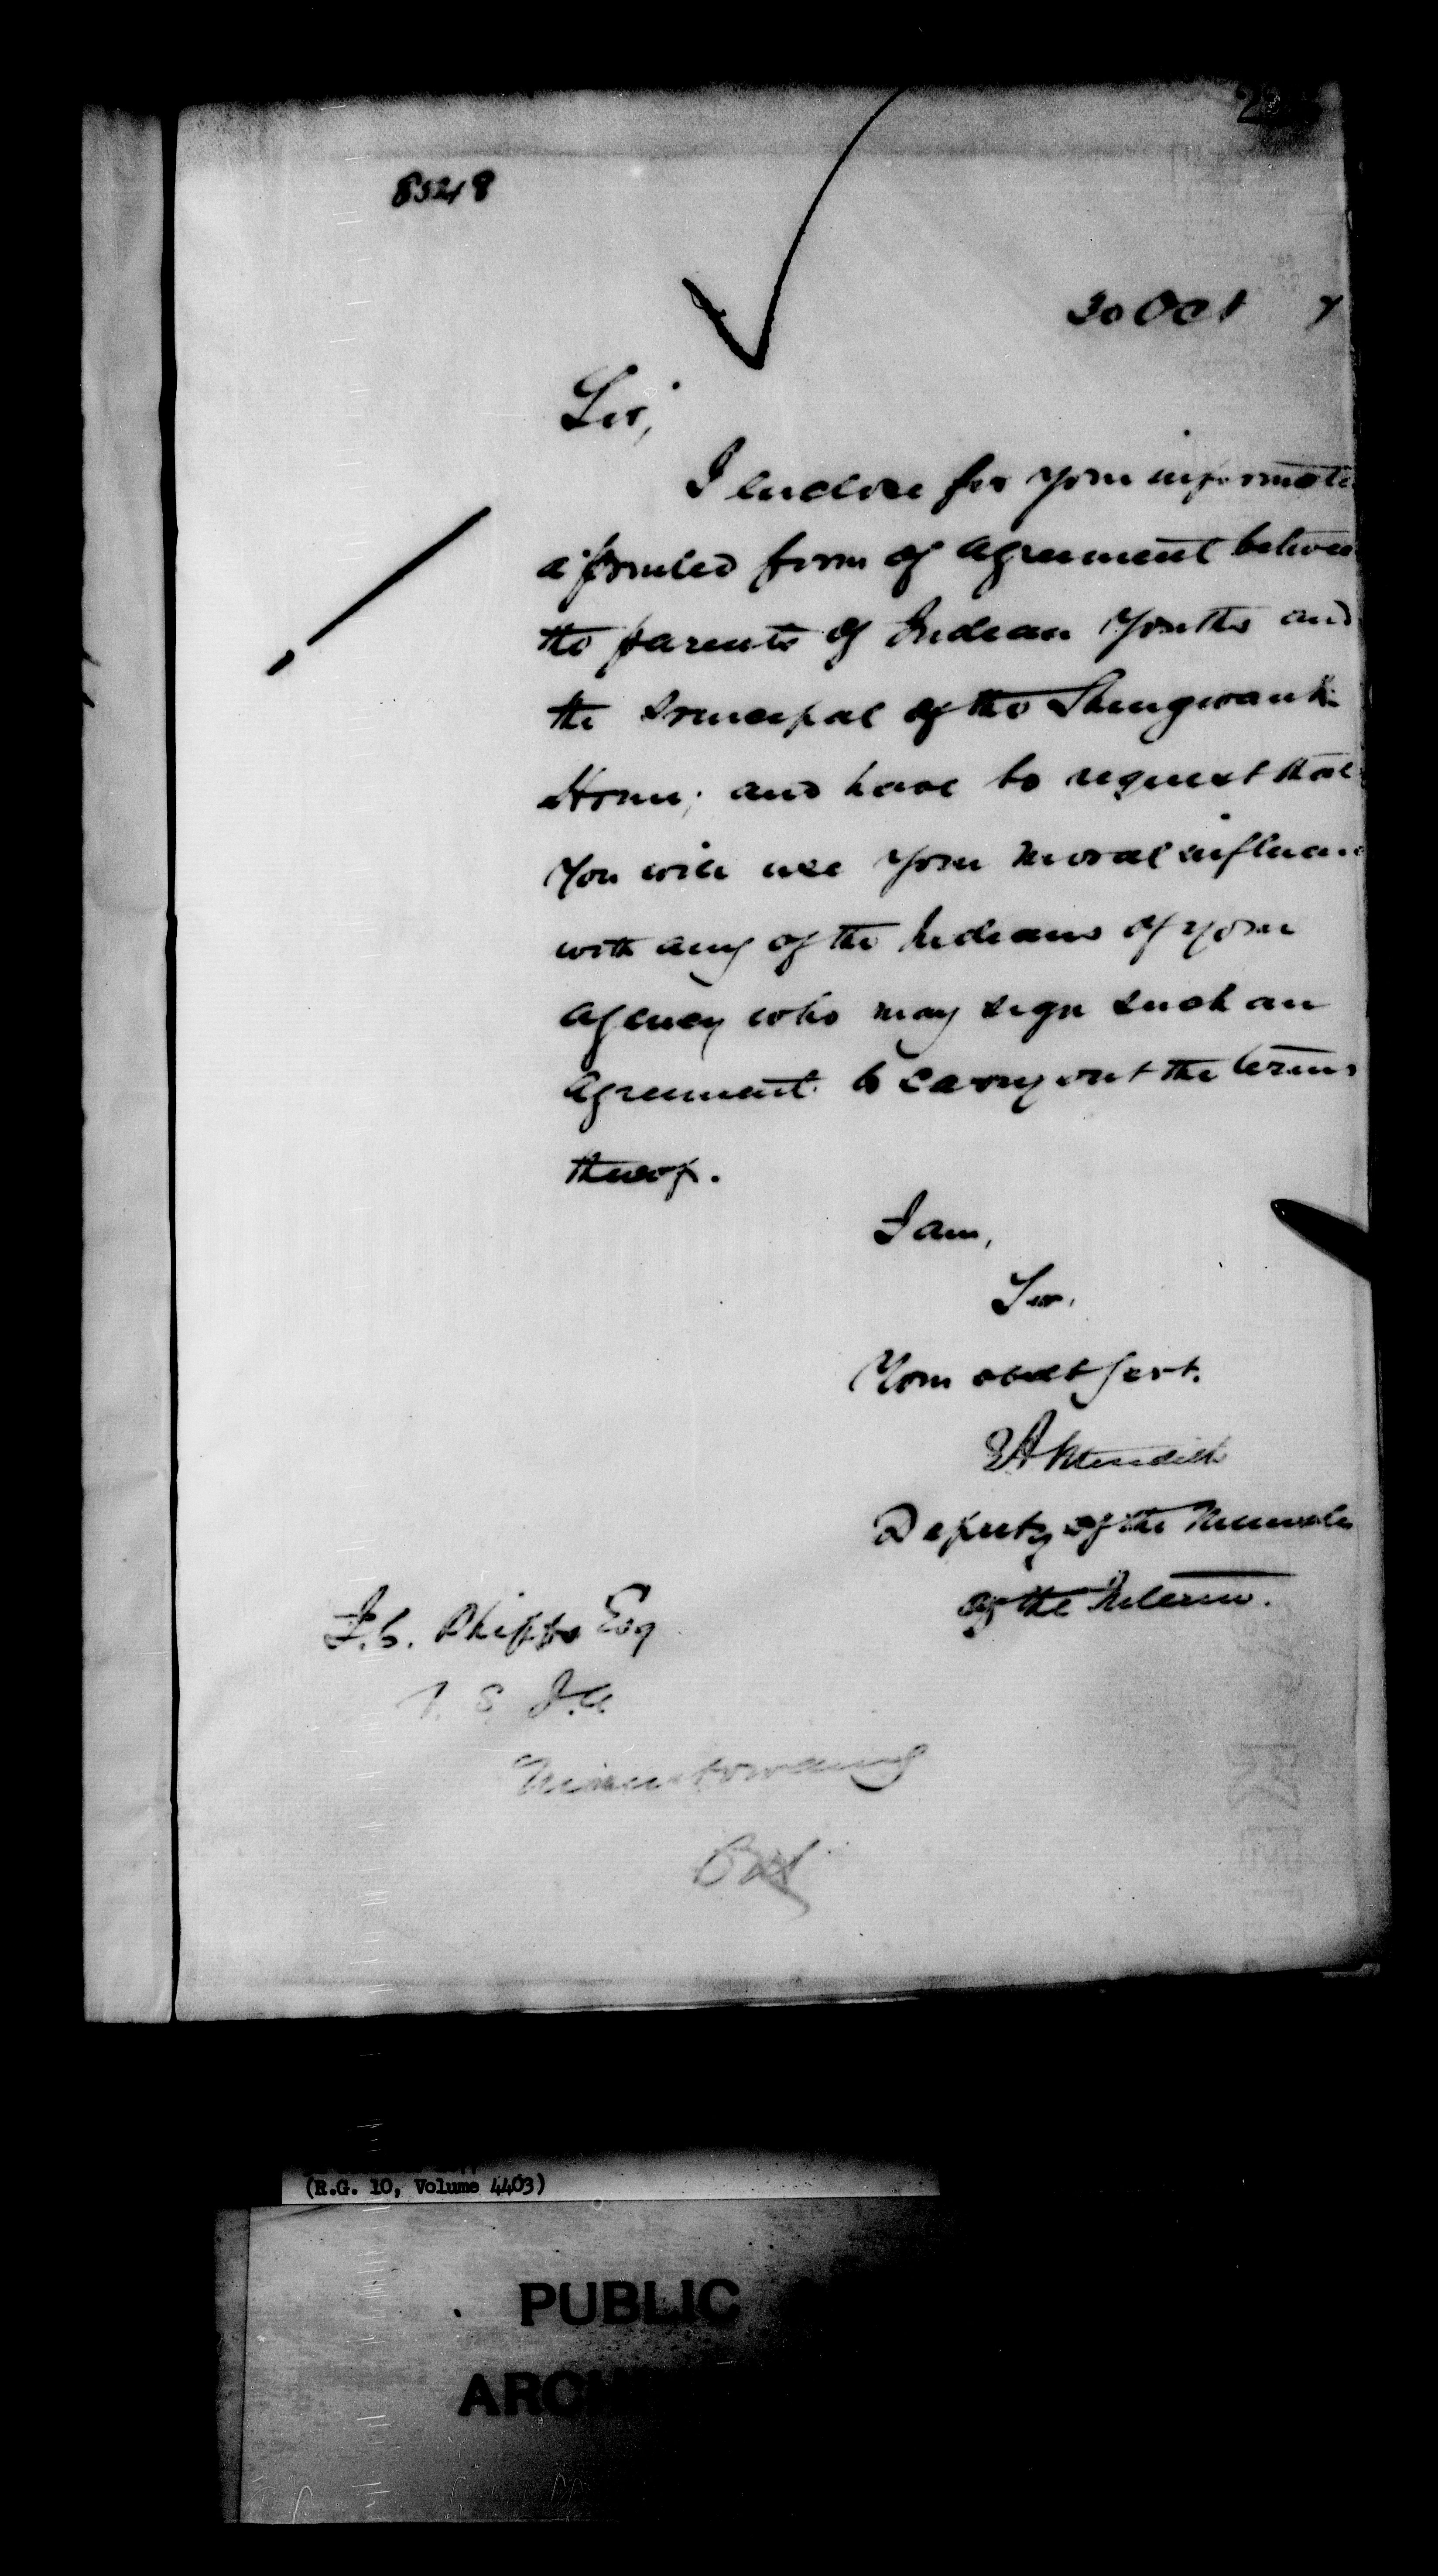 85248
30 Oct 7
Sir,
I enclose for your informati
a printed form of agreement betwee
the parents of Indian Youths and
the Principal of the Shingwauk
Home; and have to request that
you will use your moral influence
with any of the Indians of your
agency who may sign such an
agreement to carry out the terms
thereof.
I am,
Sir,
Your obedt Servt.
EA Meredith
Deputy of the Minister
of the Interior.
J.C. Phipps Esq
V. S. I. A.
Manitowaning
Ont
(R.G. 10, Volume 4403)
PUBLIC
ARCH